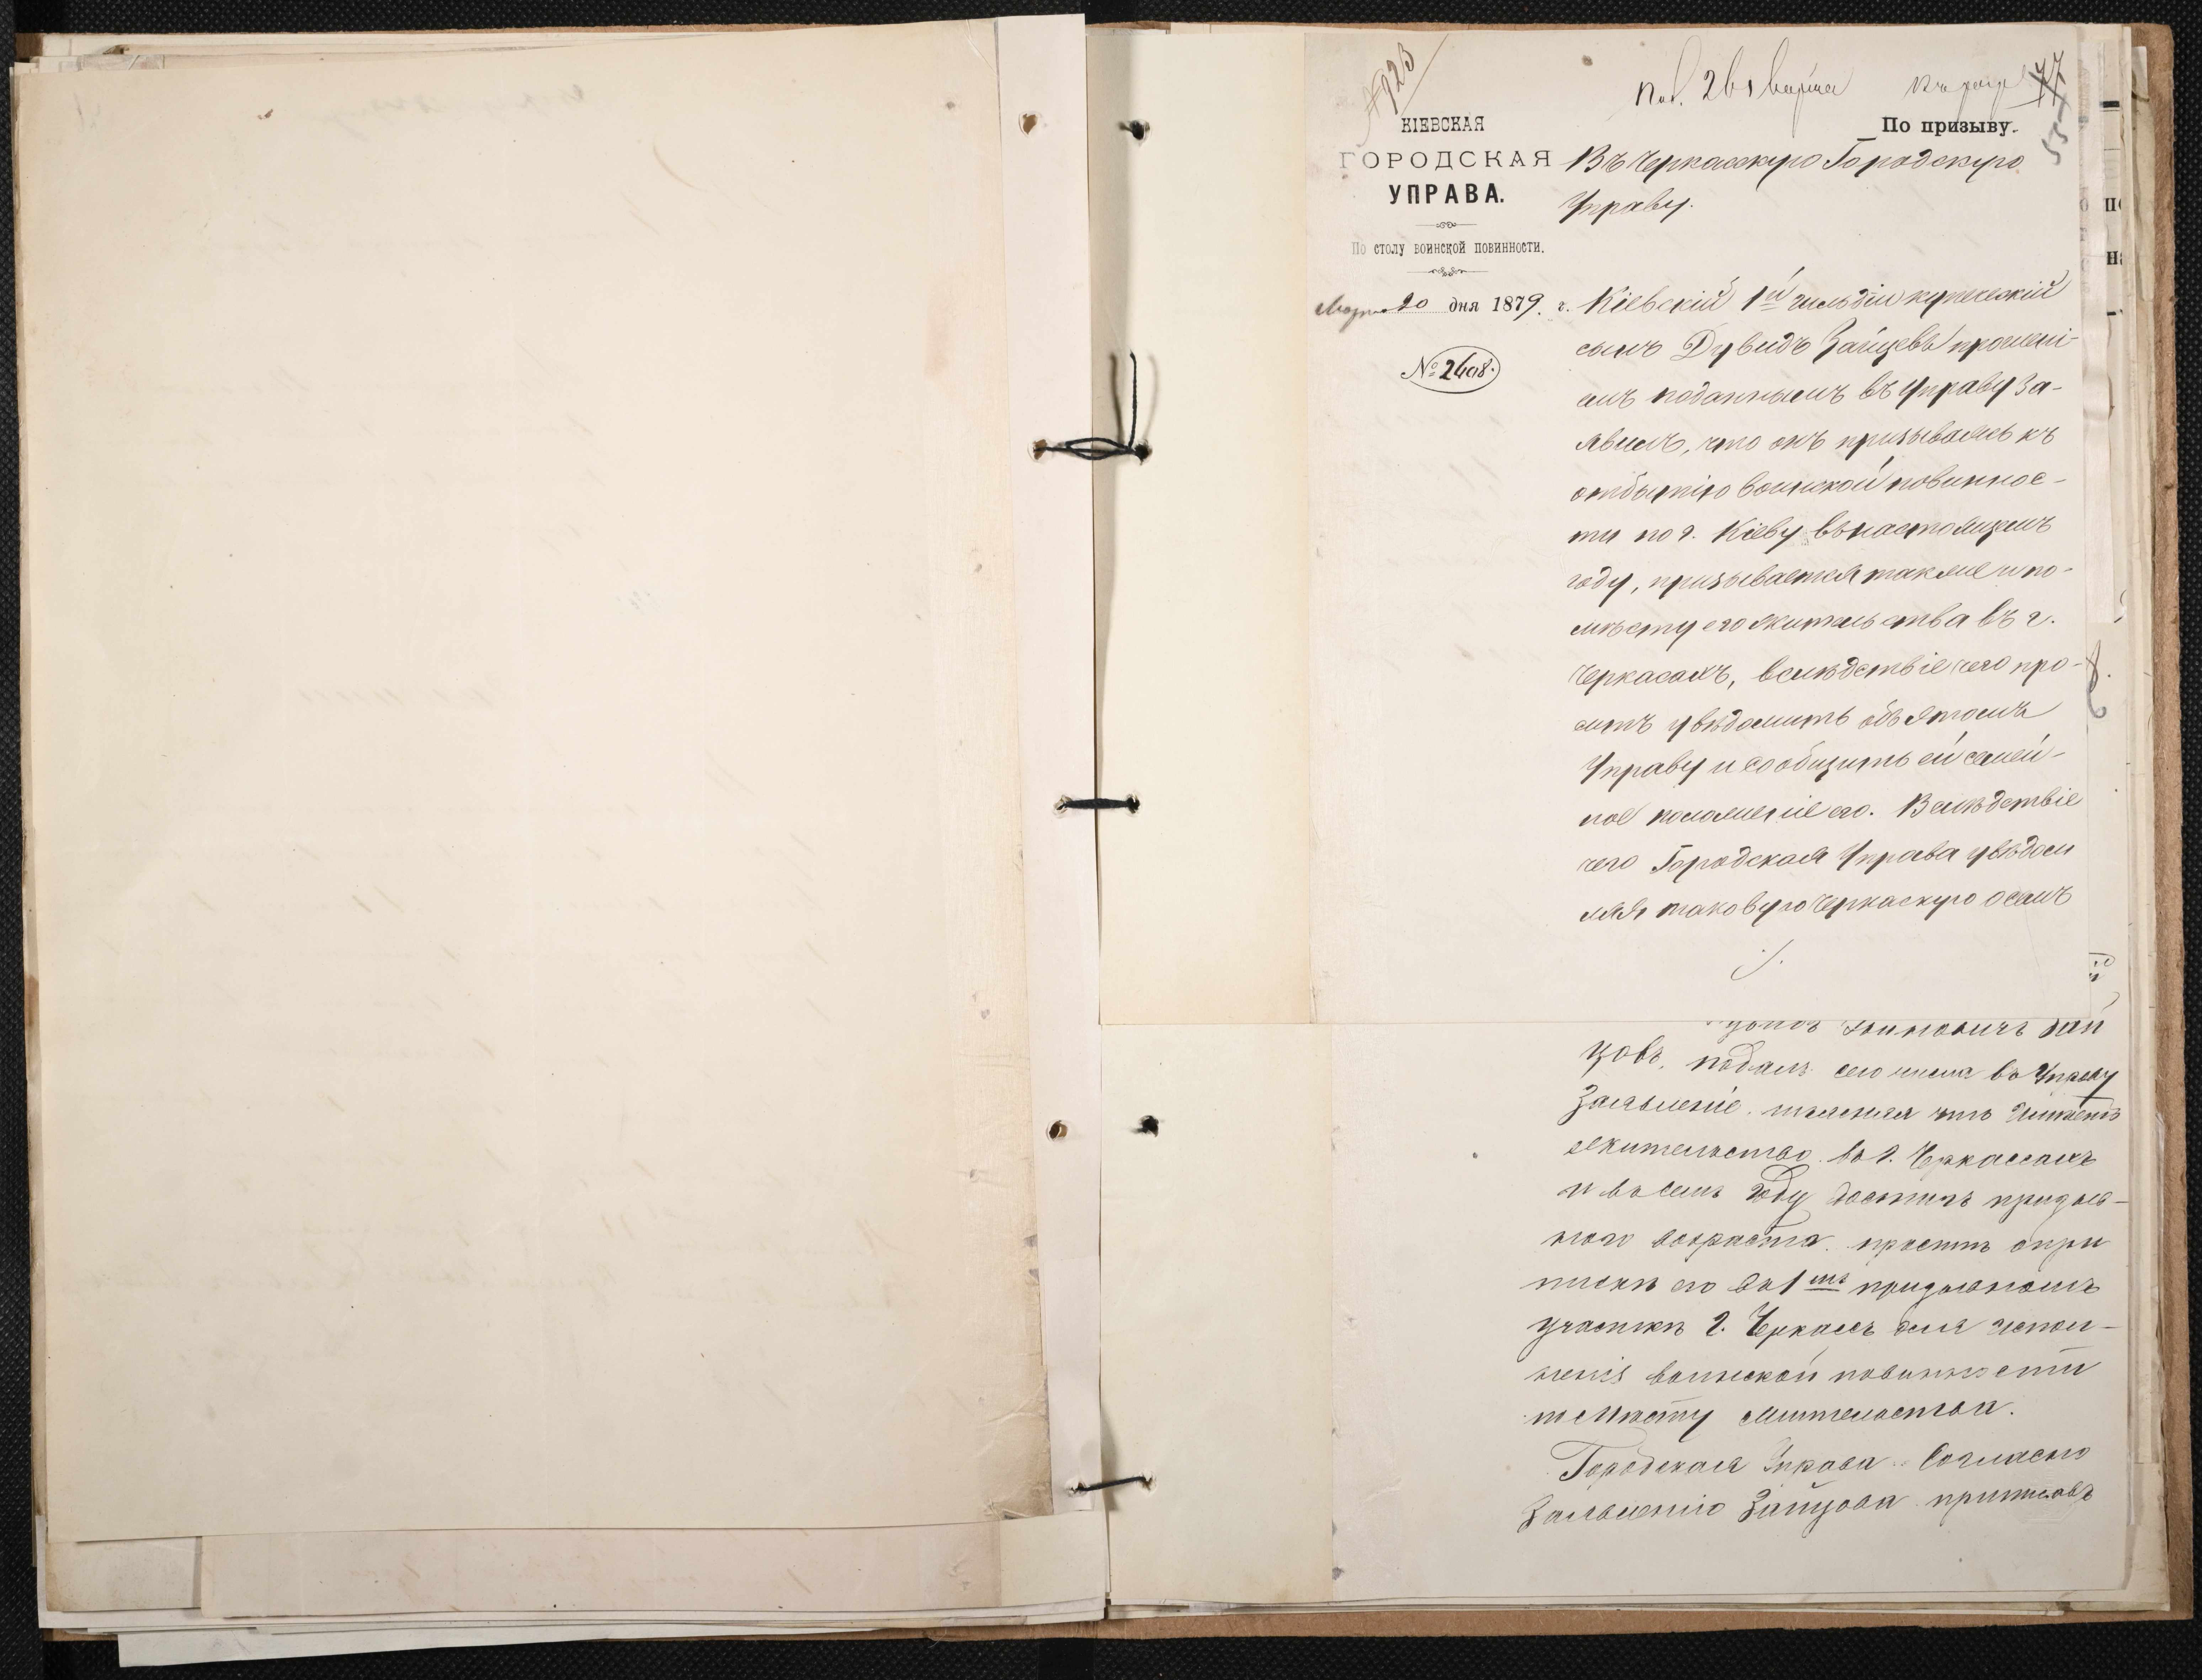 № 923
Пол. 26 марта
77
55
КІЕВСКАЯ
ГОРОДСКАЯ
УПРАВА.
По столу воинской повинности.
Марта 20 дня 1879. г.
№ 2408.
По призыву.
Въ Черкасскую Городскую
Управу.
Кіевскій 1й гильдіи купеческій
сынъ Дувидъ Зайцевъ прошені-
емъ поданнымъ въ Управу за-
явилъ, что онъ призываясь къ
отбытію воинской повиннос-
ти по г. Кіеву въ настоящемъ
году, призывается также и по
мѣсту его жительства въ г.
Черкасахъ, вслѣдствіе чего про-
ситъ увѣдомить объ этомъ
Управу и сообщить ей семей-
ное положеніе его. Вслѣдствіе
чего Городская Управа увѣдом
ляя таковую Черкаскую о семъ
./.
Зай
цовъ, подалъ сего числа въ Управу
Заявленіе что имѣетъ
жительство въ г. Черкассахъ
и въ семъ году достигъ призыв-
ного возраста. проситъ о при
пискѣ его въ 1мъ призывномъ
участкѣ г. Черкасъ для испол-
ненія воинской повинности
по мѣсту жительства.
Городская Управа Согласно
Заявленію Зайцова приписавъ